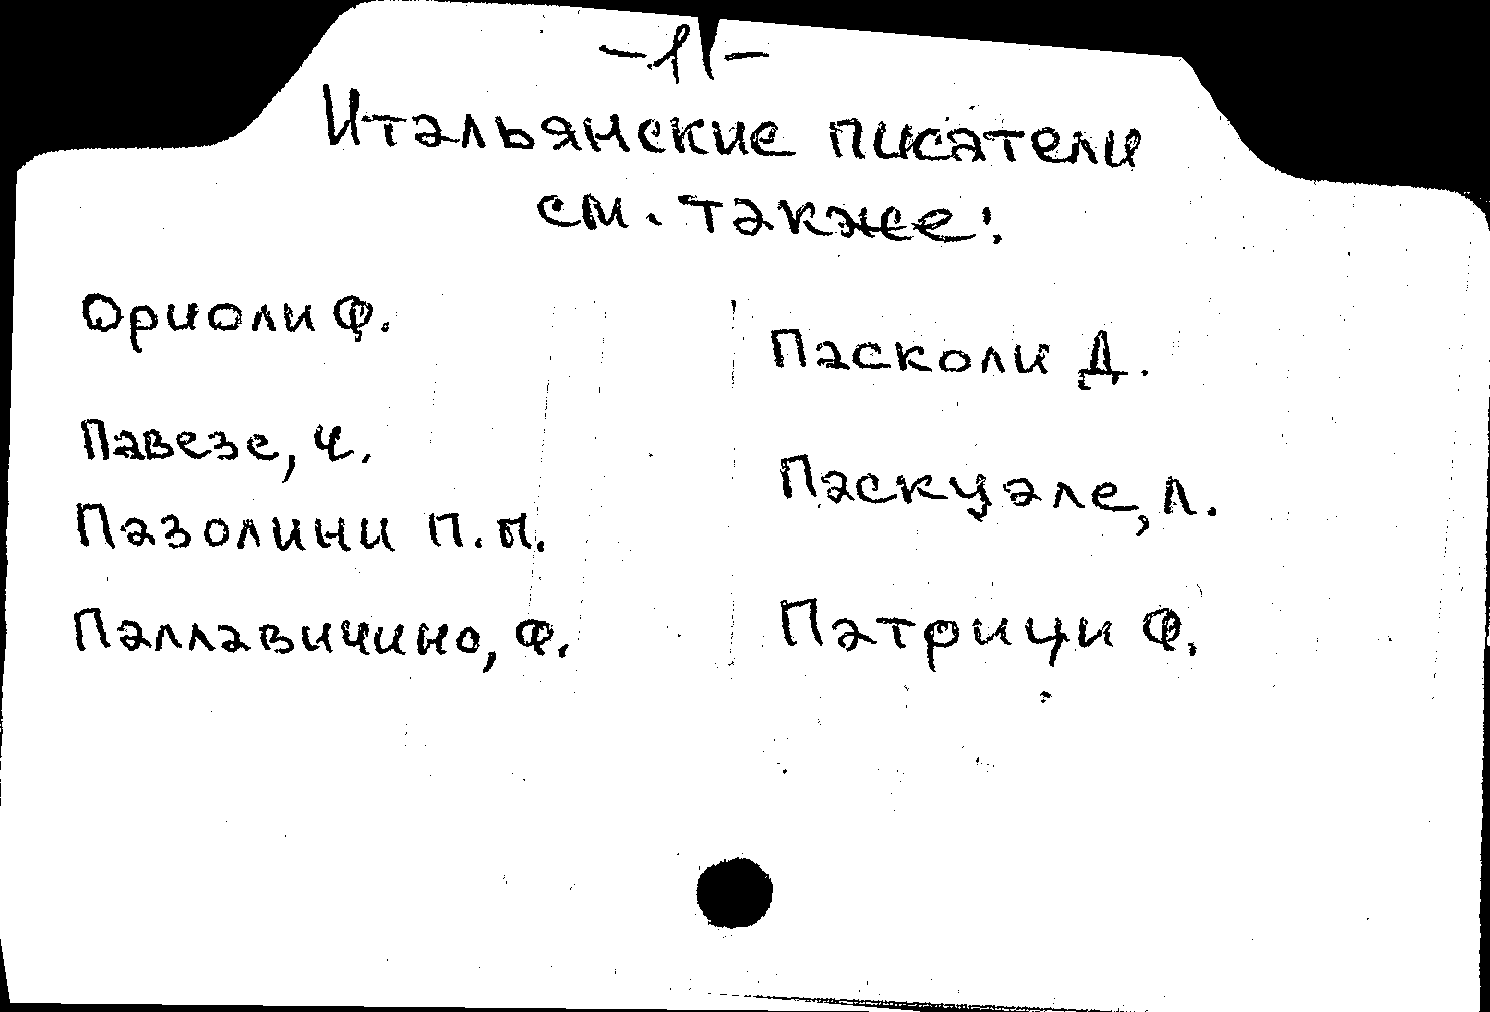 -11-
Итальянские писатели
см. также:
Ориоли Ф.
Павезе, Ч.
Пазолини П.П.
Паллавичино, Ф.
Пасколи Д.
Паскуале, Л.
Патрици Ф.